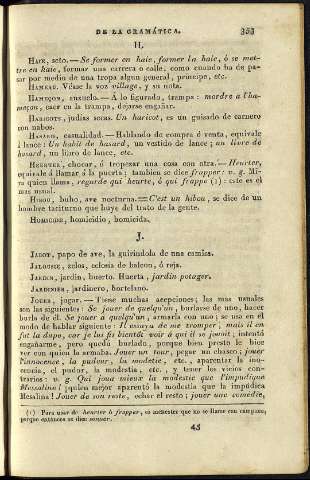 DE LA GRAMÁTICA. 353
H.
HAIE, seto. — Se former en haie, former la haie, ó se met-
tre en haie, formar una carrera ó calle, como cuando ha de pa-
sar por medio de una tropa algun general, príncipe, etc.
HAMEAU. Véase la voz village, y su nota.
HAMEÇON, anzuelo. — Á lo figurado, trampa: mordre à l'ha-
meçon, caer en la trampa, dejarse engañar.
HARICOTS, judías secas. Un haricot, es un guisado de carnero
con nabos.
HASARD, casualidad. — Hablando de compra ó venta, equivale
á lance: Un habit de hasard, un vestido de lance; un livre de
hasard, un libro de lance, etc.
HEURTER, chocar, ó tropezar una cosa con otra. — Heurter,
equivale á llamar á la puerta: tambien se dice frapper: v. g. Mi-
ra quien llama, regarde qui heurte, ó qui frappe (1): este es el
mas usual.
HIBOU, buho, ave nocturna. = C'est un hibou, se dice de un
hombre taciturno que huye del trato de la gente.
HOMICIDE, homicidio, homicida.
J.
JABOT, papo de ave, la guirindola de una camisa.
JALOUSIE, zelos, celosía de balcon, ó reja.
JARDIN, jardin, huerto. Huerta, jardin potager.
JARDINIER, jardinero, hortelano.
JOUER, jugar. — Tiene muchas acepciones; las mas usuales
son las siguientes: Se jouer de quelqu'un, burlarse de uno, hacer
burla de él. Se jouer à quelqu'un, armarla con uno; se usa en el
modo de hablar siguiente: Il essaya de me tromper, mais il en
fut la dupe, car je lui fis bientôt voir à qui il se jouoit; intentó
engañarme, pero quedó burlado, porque bien presto le hice
ver con quien la armaba. Jouer un tour, pegar un chasco; jouer
l'innocence, la pudeur, la modestie, etc., aparentar la ino-
cencia, el pudor, la modestia, etc., y tener los vicios con-
trarios: v. g. Qui joua mieux la modestie que l'impudique
Messaline! ¡quien mejor aparentó la modestia que la impúdica
Mesalina! Jouer de son reste, echar el resto; jouer une comédie,
(1) Para usar de heurter ó frapper, es menester que no se llame con campana,
porque entonces se dice sonner.
45